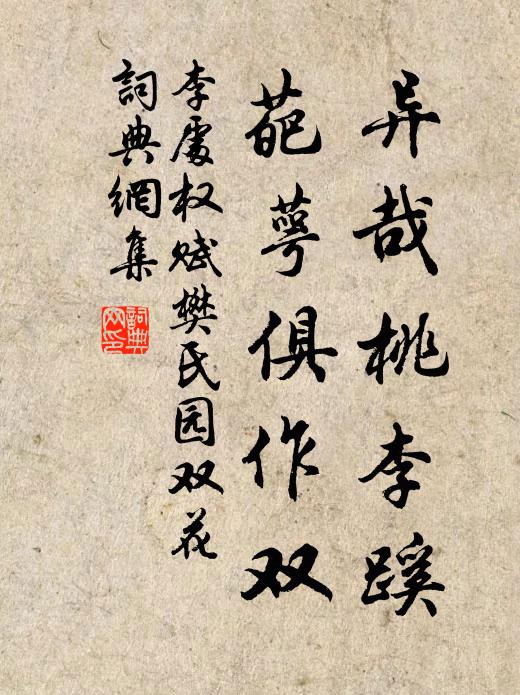 异哉桃李蹊
葩萼俱作双
李处权赋樊氏园双花
詞典網集
詞典网印